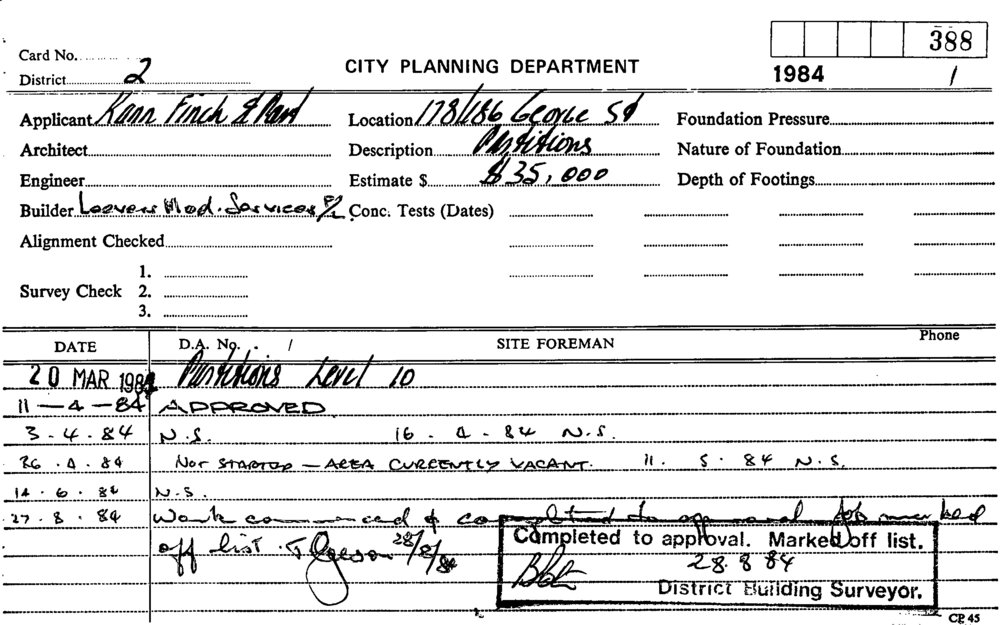 388
Card No.
CITY PLANNING DEPARTMENT
District 2
1984 1
Applicant Kann Finch & Location 178/186 George St Foundation Pressure
Architect Description Partitions Nature of Foundation
Engineer Estimate $ $35,000 Depth of Footings
Builder Leevers Mod. Services P/L Conc. Tests (Dates)
Alignment Checked
1.
Survey Check 2.
3.
DATE D.A. No. / SITE FOREMAN Phone
20 MAR 1984 Partitions Level 10
11-4-84 APPROVED
3.4.84 N.S. 16.4.84 N.S.
26.4.84 NOT STARTED - AREA CURRENTLY VACANT. 11.5.84 N.S.
14.6.84 N.S.
27.8.84 Work commenced & completed to approval Job marked
off list. 28/8/84
Completed to approval. Marked off list.
28.8.84
District Building Surveyor.
CP.45